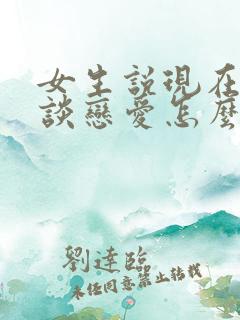 女生說現在
談戀愛怎麼
劉達臨
未经同意禁止转载